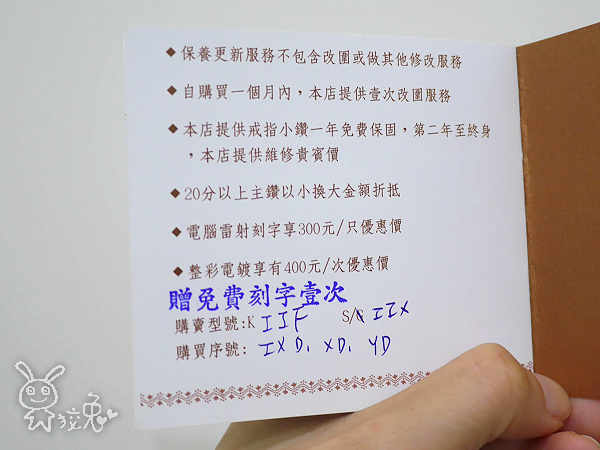 ◆保養更新服務不包含改圍或做其他修改服務
◆自購買一個月內，本店提供壹次改圍服務
◆本店提供戒指小鑽一年免費保固，第二年至終身
，本店提供維修貴賓價
◆20分以上主鑽以小換大金額折抵
◆電腦雷射刻字享300元/只優惠價
◆整彩電鍍享有400元/次優惠價
贈免費刻字壹次
購賣型號:K IIF S/ IZX
購買序號: IXD, XD, YD
狡兔